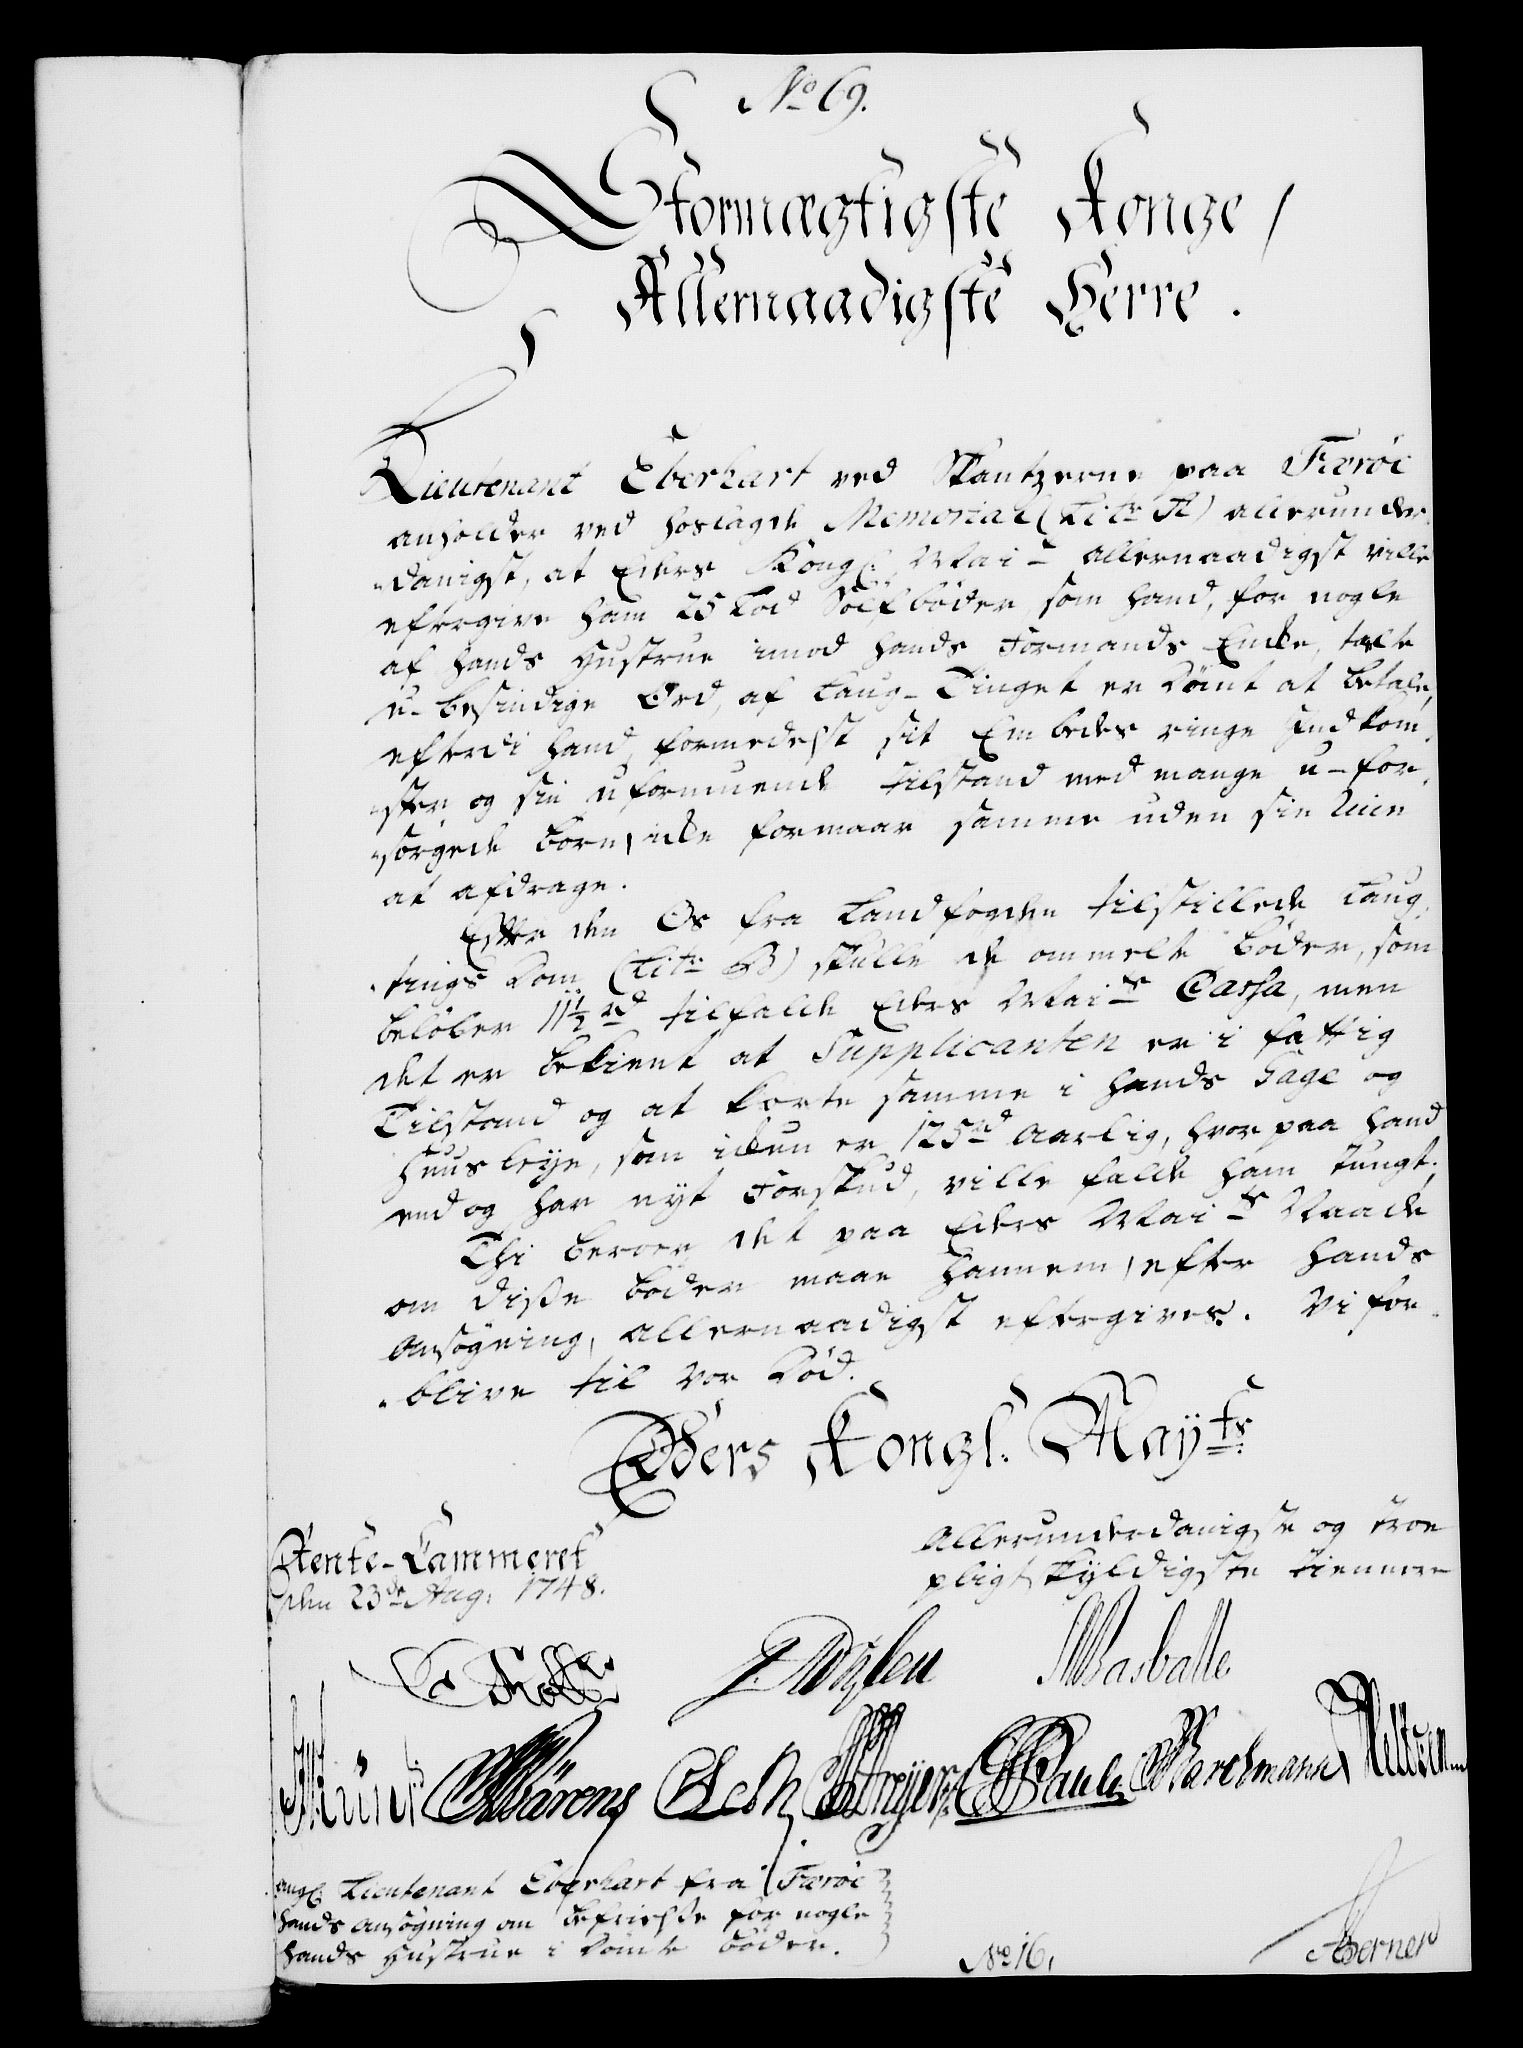 No 69.
Stormægtigste Konge /
Allernaadigste Herre.
Lieutenant Eberhart ved Skantzerne paa Færöe
anholder ved hoslagde Memorial (Litr: A) allerunder-
danigst, at Eders Kongl: Mai- allernaadigst ville
eftergive ham 25 Lod Sölf böder, som hand, for nogle
af hands Hustrue imod hands Formands Enke, talte
u-besindige Ord, af Laug-Tinget er dömt at betale,
efterdi hand, formedelst sit Embedes ringe Indkom-
ster, og sin uformuende tilstand med mange u-for-
sörgede börn, icke formaar samme uden sin Ruin
at afdrage.
Efter den Os fra Landfogden tilstillede Laug-
tings Dom (Litr: B) skulle de ommelte böder, som
belöber 11½ rd tilfalde Eders Mai- Cassa, men
det er bekient at Supplicanten er i fattig
Tilstand og at korte samme i hands Gage og
Huusleye, som ickun er 125 rd Aarlig, hvor paa hand
end og har nyt Forskud, ville falde ham tungt;
Thi beroer det paa Eders Mai- Naade
om disse böder maae hannem, efter hands
Ansögning, allernaadigst eftergives. Vi for-
blive til vor Död.
Eders Kongl. Mayts:
Allerunderdanigste og troe
pligtskyldigste tiennere
Rente-Cammeret
den 23de Aug: 1748.
Holst
Masballe
Bärens
Pauli Barchmann
angl Lieutenant Eberhart fra Færöe
hands ansögning om befrielse for nogle
hands Hustrue i dömte böder.
No 16.
Berner